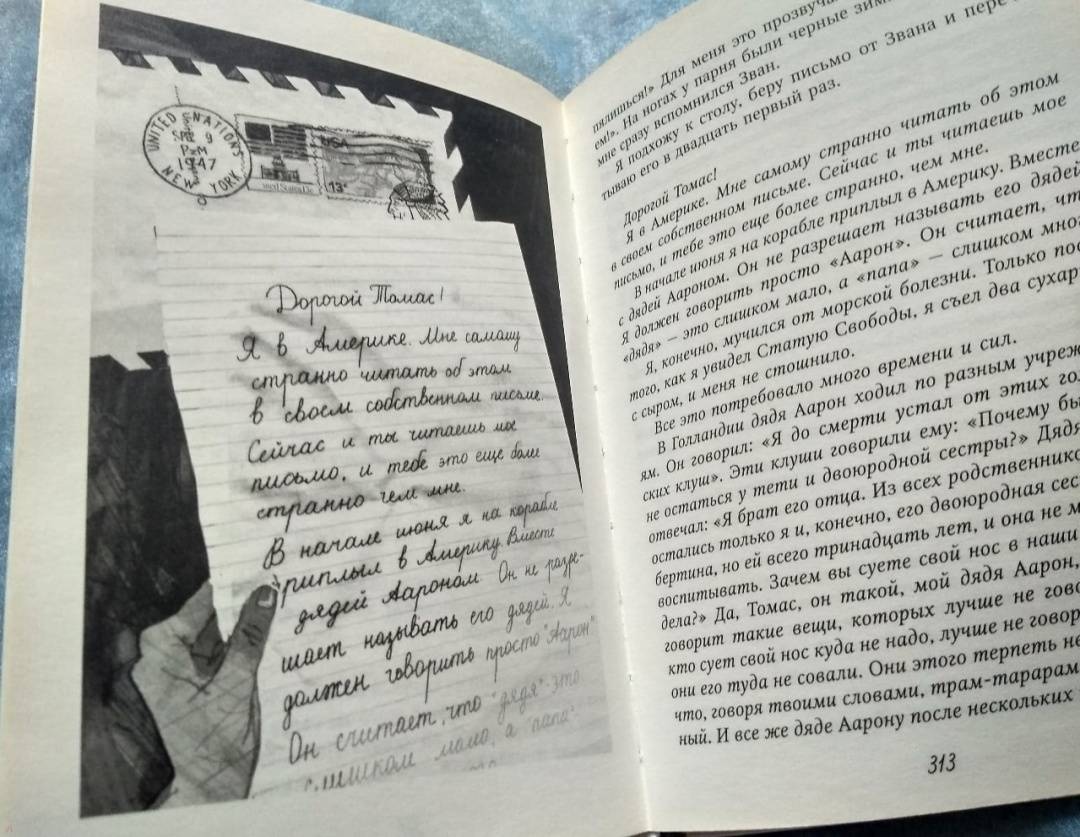 UNITED NATIONS
9
P M
1947
NEW YORK
USA
13c
Дорогой Томас!
Я в Америке. Мне самому
странно читать об этом
в своем собственном письме.
Сейчас и ты читаешь мое
письмо, и тебе это еще более
странно чем мне.
В начале июня я на корабле
приплыл в Америку. Вместе
дядей Аароном. Он не разре-
шает называть его дядей. Я
должен говорить просто "Аарон"
Он считает, что "дядя"- это
слишком мало, а "папа"-
пялишься!» Для меня это прозвуча
ем!». На ногах у парня были черные зим
мне сразу вспомнился Зван.
Я подхожу к столу, беру письмо от Звана и пере
тываю его в двадцать первый раз.
Дорогой Томас!
Я в Америке. Мне самому странно читать об этом
в своем собственном письме. Сейчас и ты читаешь мое
письмо, и тебе это еще более странно, чем мне.
В начале июня я на корабле приплыл в Америку. Вместе
с дядей Аароном. Он не разрешает называть его дядей
Я должен говорить просто «Аарон». Он считает, чт
«дядя» — это слишком мало, а «папа» — слишком мног
Я, конечно, мучился от морской болезни. Только пос
того, как я увидел Статую Свободы, я съел два сухар
с сыром, и меня не стошнило.
Все это потребовало много времени и сил.
В Голландии дядя Аарон ходил по разным учреж
ям. Он говорил: «Я до смерти устал от этих гол
ских клуш». Эти клуши говорили ему: «Почему бы
не остаться у тети и двоюродной сестры?» Дядя
отвечал: «Я брат его отца. Из всех родственнико
остались только я и, конечно, его двоюродная сес
бертина, но ей всего тринадцать лет, и она не м
воспитывать. Зачем вы суете свой нос в наши
дела?» Да, Томас, он такой, мой дядя Аарон,
говорит такие вещи, которых лучше не гово
кто сует свой нос куда не надо, лучше не говор
они его туда не совали. Они этого терпеть не
что, говоря твоими словами, трам-тарарам
ный. И все же дяде Аарону после нескольких
313